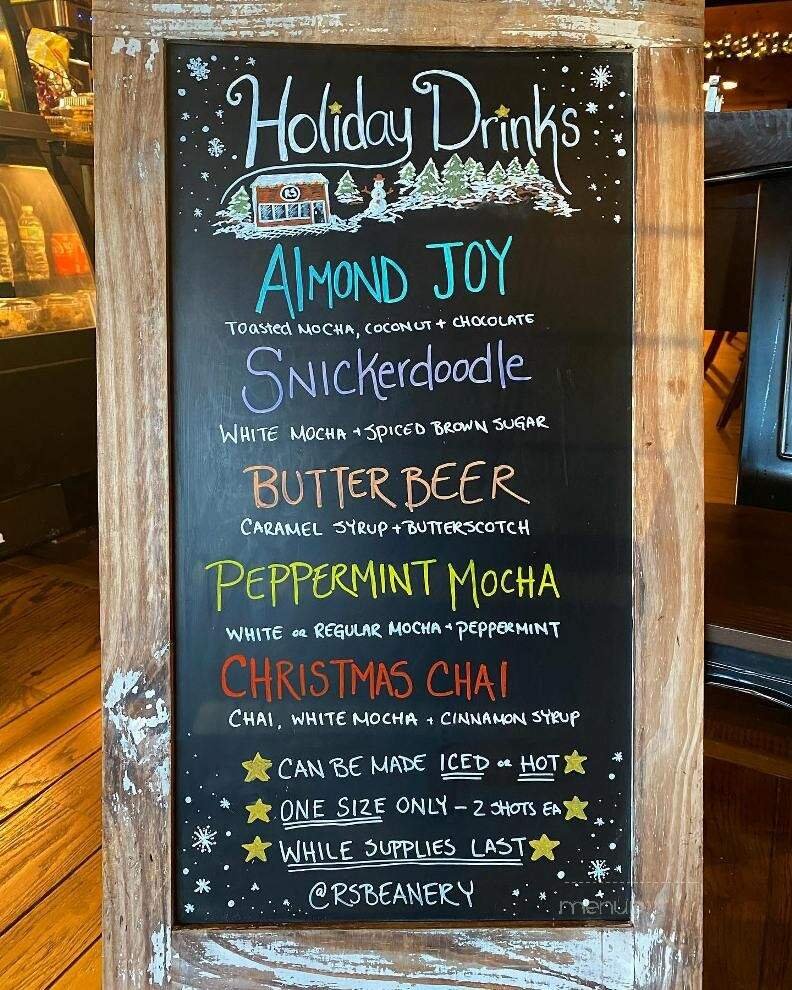 Holiday Drinks
RS
ALMOND JOY
TOASTED MOCHA, COCONUT + CHOCOLATE
SNICKerdoodle
WHITE MOCHA + SPICED BROWN SUGAR
BUTTER BEER
CARAMEL SYRUP + BUTTERSCOTCH
PEPPERMINT MOCHA
WHITE OR REGULAR MOCHA + PEPPERMINT
CHRISTMAS CHAI
CHAI, WHITE MOCHA + CINNAMON SYRUP
CAN BE MADE ICED OR HOT
ONE SIZE ONLY - 2 SHOTS EA
WHILE SUPPLIES LAST
@RSBEANERY